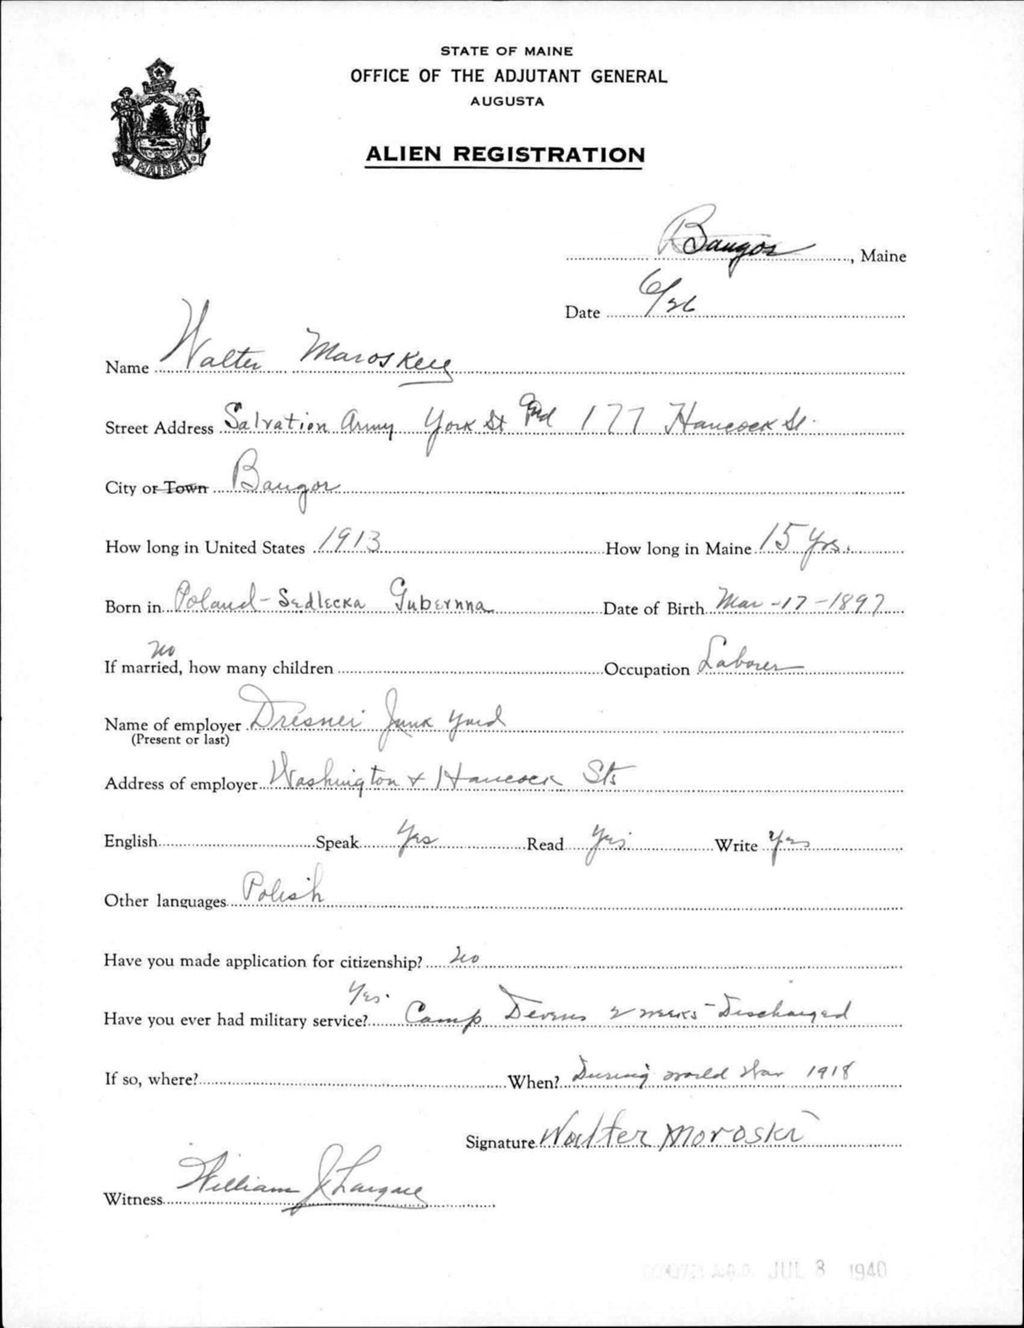 STATE OF MAINE
OFFICE OF THE ADJUTANT GENERAL
AUGUSTA
ALIEN REGISTRATION
MAINE
Bangor, Maine
Date 6/26
Name Walter
Street Address Salvation Army York St And 177 Hancock St.
City or Town Bangor
How long in United States 1913 How long in Maine 15 Yrs.
Born in Poland - Sedlecka Gubernna Date of Birth Mar - 17 - 1897
If married, how many children no Occupation Laborer
Name of employer Dresner Junk Yard
(Present or last)
Address of employer Washington + Hancock Sts
English Speak Yes Read Yes Write Yes
Other languages Polish
Have you made application for citizenship? no
Yes.
Have you ever had military service? Camp Devens 2 weeks - Discharged
If so, where? When? During World War 1918
Signature Walter Moroski
Witness William J
JUL 3 1940